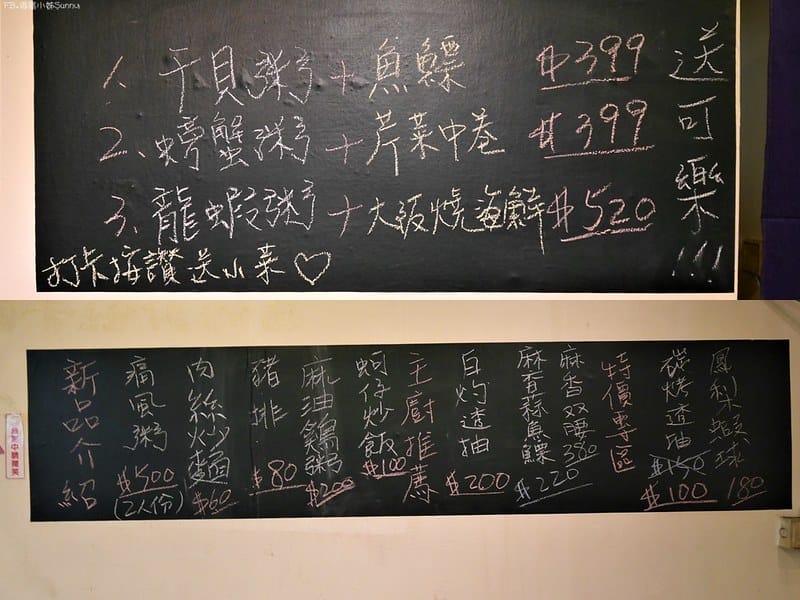 FB.海藍小姊Sunnu
1、干貝粥+魚鰾 $399
2、螃蟹粥+芹菜中卷 $399
3、龍蝦粥+大阪燒海鮮 $520
送可樂!!!
打卡按讚送小菜♡
新品介紹
痛風粥 $500 (2人份)
肉絲炒麵 $60
豬排 $80
麻油鷄粥 $200
蚵仔炒飯 $100
主廚推薦
白灼透抽 $200
麻香蒜魚鰾 $220
麻香双腰 380
特價專區
碳烤透抽 $150 $100
鳳梨蝦球 180